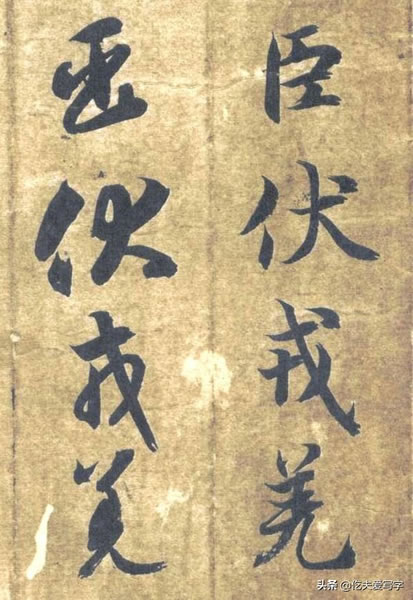 臣伏戎羌
臣伏戎羌
头条 @仡夫爱写字